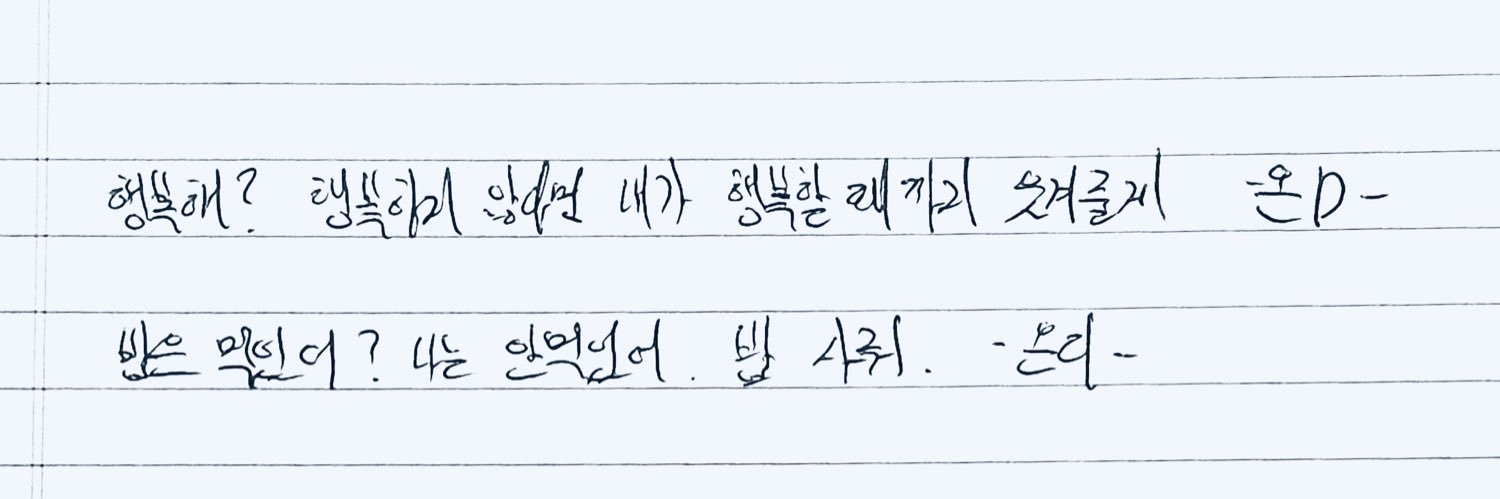 행복해? 행복하지 않다면 내가 행복할 때까지 웃겨줄게 -온D-
밥은 먹었어? 나는 안먹었어. 밥 사줘. -온디-